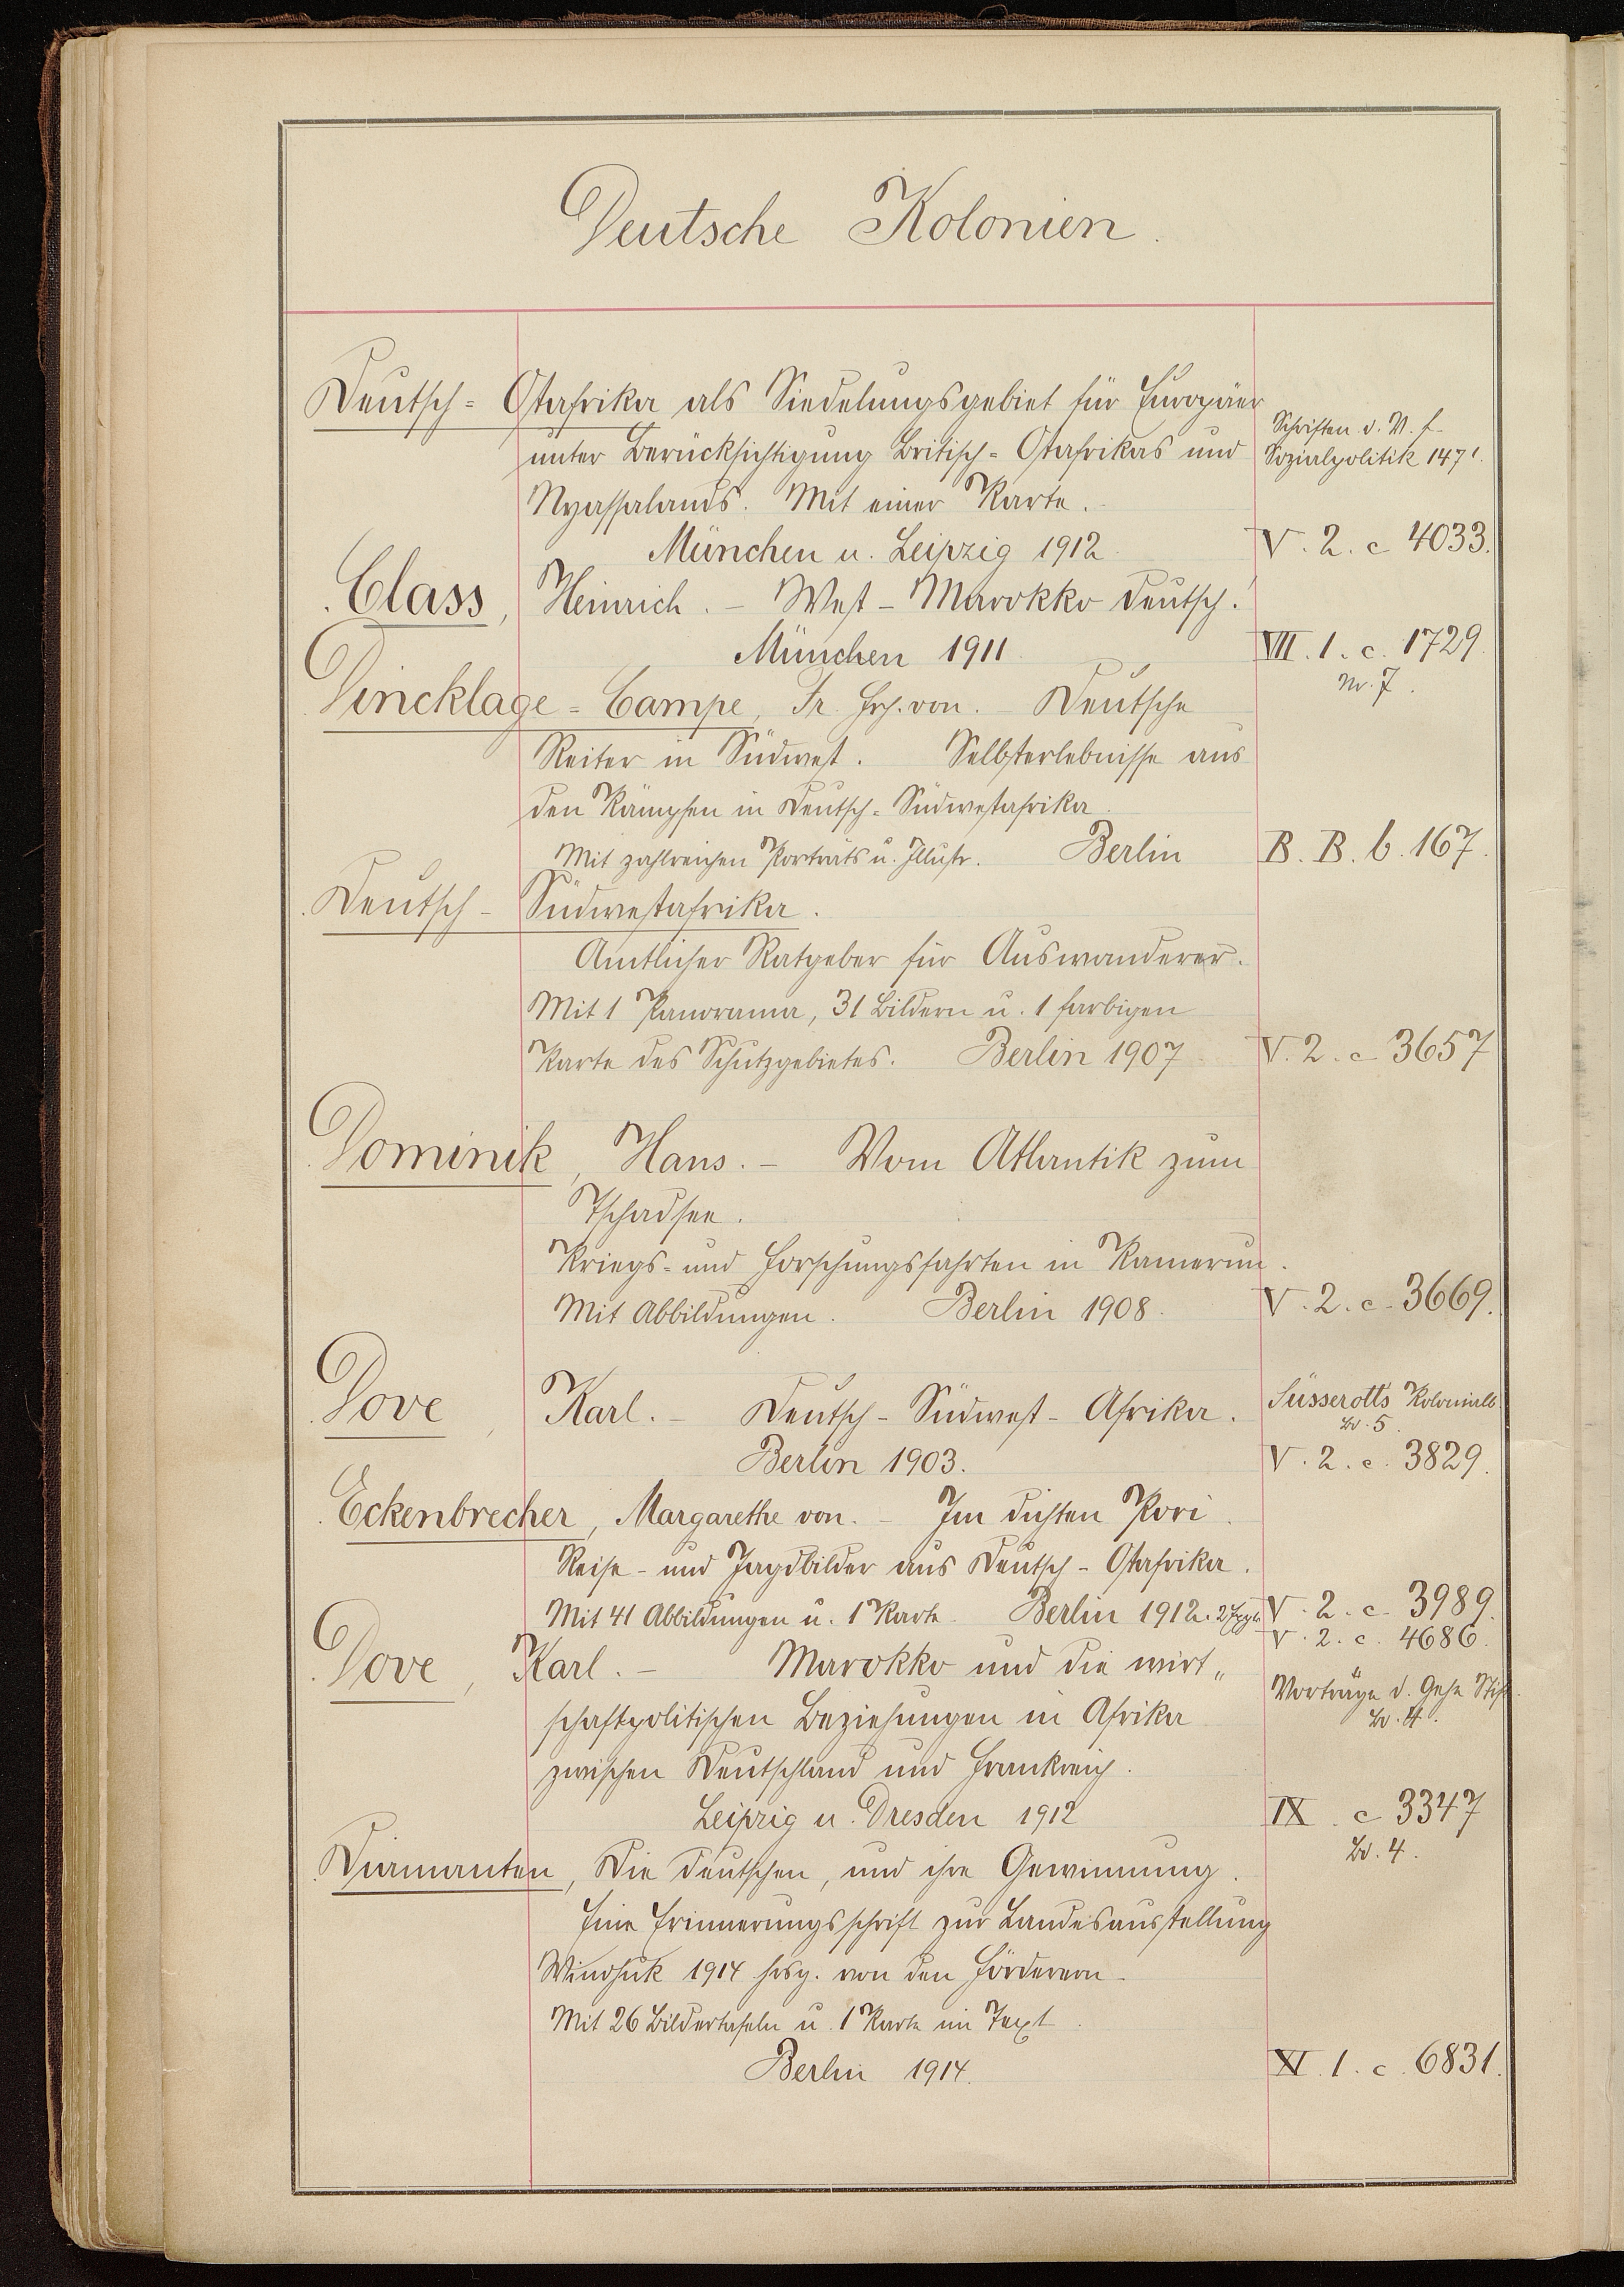 Deutsche Kolonien.
Deutsch= Ostafrika als Siedelungsgebiet für Europäer
Schriften d. V. f.
unter Berücksichtigung Britisch=Ostafrikas und
Sozialpolitik 147 I.
Nyassalands. Mit einer Karte.
München u. Leipzig 1912.
V. 2. c 4033.
Class, Heinrich. – West-Marokko deutsch.
München 1911.
VII. 1. c. 1729.
Nr. 7.
Dincklage=Campe, Fr. Frh. von. – Deutsche
Reiter in Südwest. Selbsterlebnisse aus
den Kämpfen in Deutsch=Südwestafrika.
Mit zahlreichen Porträts u. Illustr. Berlin
B. B. b. 167.
Deutsch- Südwestafrika.
Amtlicher Ratgeber für Auswanderer.
Mit 1 Panorama, 31 Bildern u. 1 farbigen
Karte des Schutzgebietes. Berlin 1907
V. 2. c 3657
Dominik, Hans. – Vom Atlantik zum
Tschadsee.
Kriegs= und Forschungsfahrten in Kamerun.
Mit Abbildungen. Berlin 1908.
V. 2. c. 3669.
Dove, Karl. – Deutsch-Südwest-Afrika.
Süsserotts Kolonialb.
Bd. 5.
Berlin 1903.
V. 2. c. 3829.
Eckenbrecher, Margarethe von. – Im dichten Pori.
Reise- und Jagdbilder aus Deutsch-Ostafrika.
Mit 41 Abbildungen u. 1 Karte. Berlin 1912. 2
V. 2. c. 3989.
V. 2. c. 4686.
Dove, Karl. – Marokko und die wirt„
Vorträge d. Gehe Stift.
Bd. 4.
schaftpolitischen Beziehungen in Afrika
zwischen Deutschland und Frankreich.
Leipzig u. Dresden 1912
IX. c 3347
Bd. 4.
Diamanten, Die deutschen, und ihre Gewinnung.
Eine Erinnerungsschrift zur Landesausstellung
Windhuk 1914 hrsg. von den Förderern.
Mit 26 Bildertafeln u. 1 Karte im Text.
Berlin 1914.
XI. 1. c. 6831.